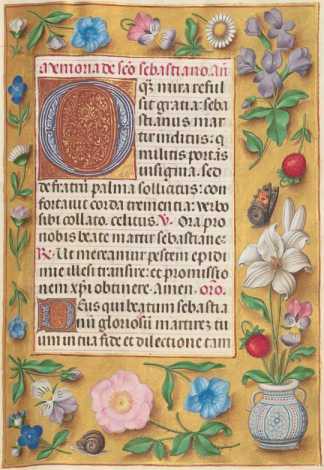 Memoria de sc̄o sebastiano. an̄
O q̄ mira reful
sit gratia seba
stianus mar
tir inclitus: q̄
militis portās
insignia. sed
de fratrū palma sollicitus: con
fortauit corda trementia: verbo
sibi collato. celitus. V. Ora pro
nobis beate martir sebastiane:
R. Ut mereamur pestem epidi
mie illesi transire: et promissio
nem xp̄i obtinere. amen. or̄o.
Deus qui beatum sebastia
nū gloriosū martirez tu
um in tua fide et dilectione tam